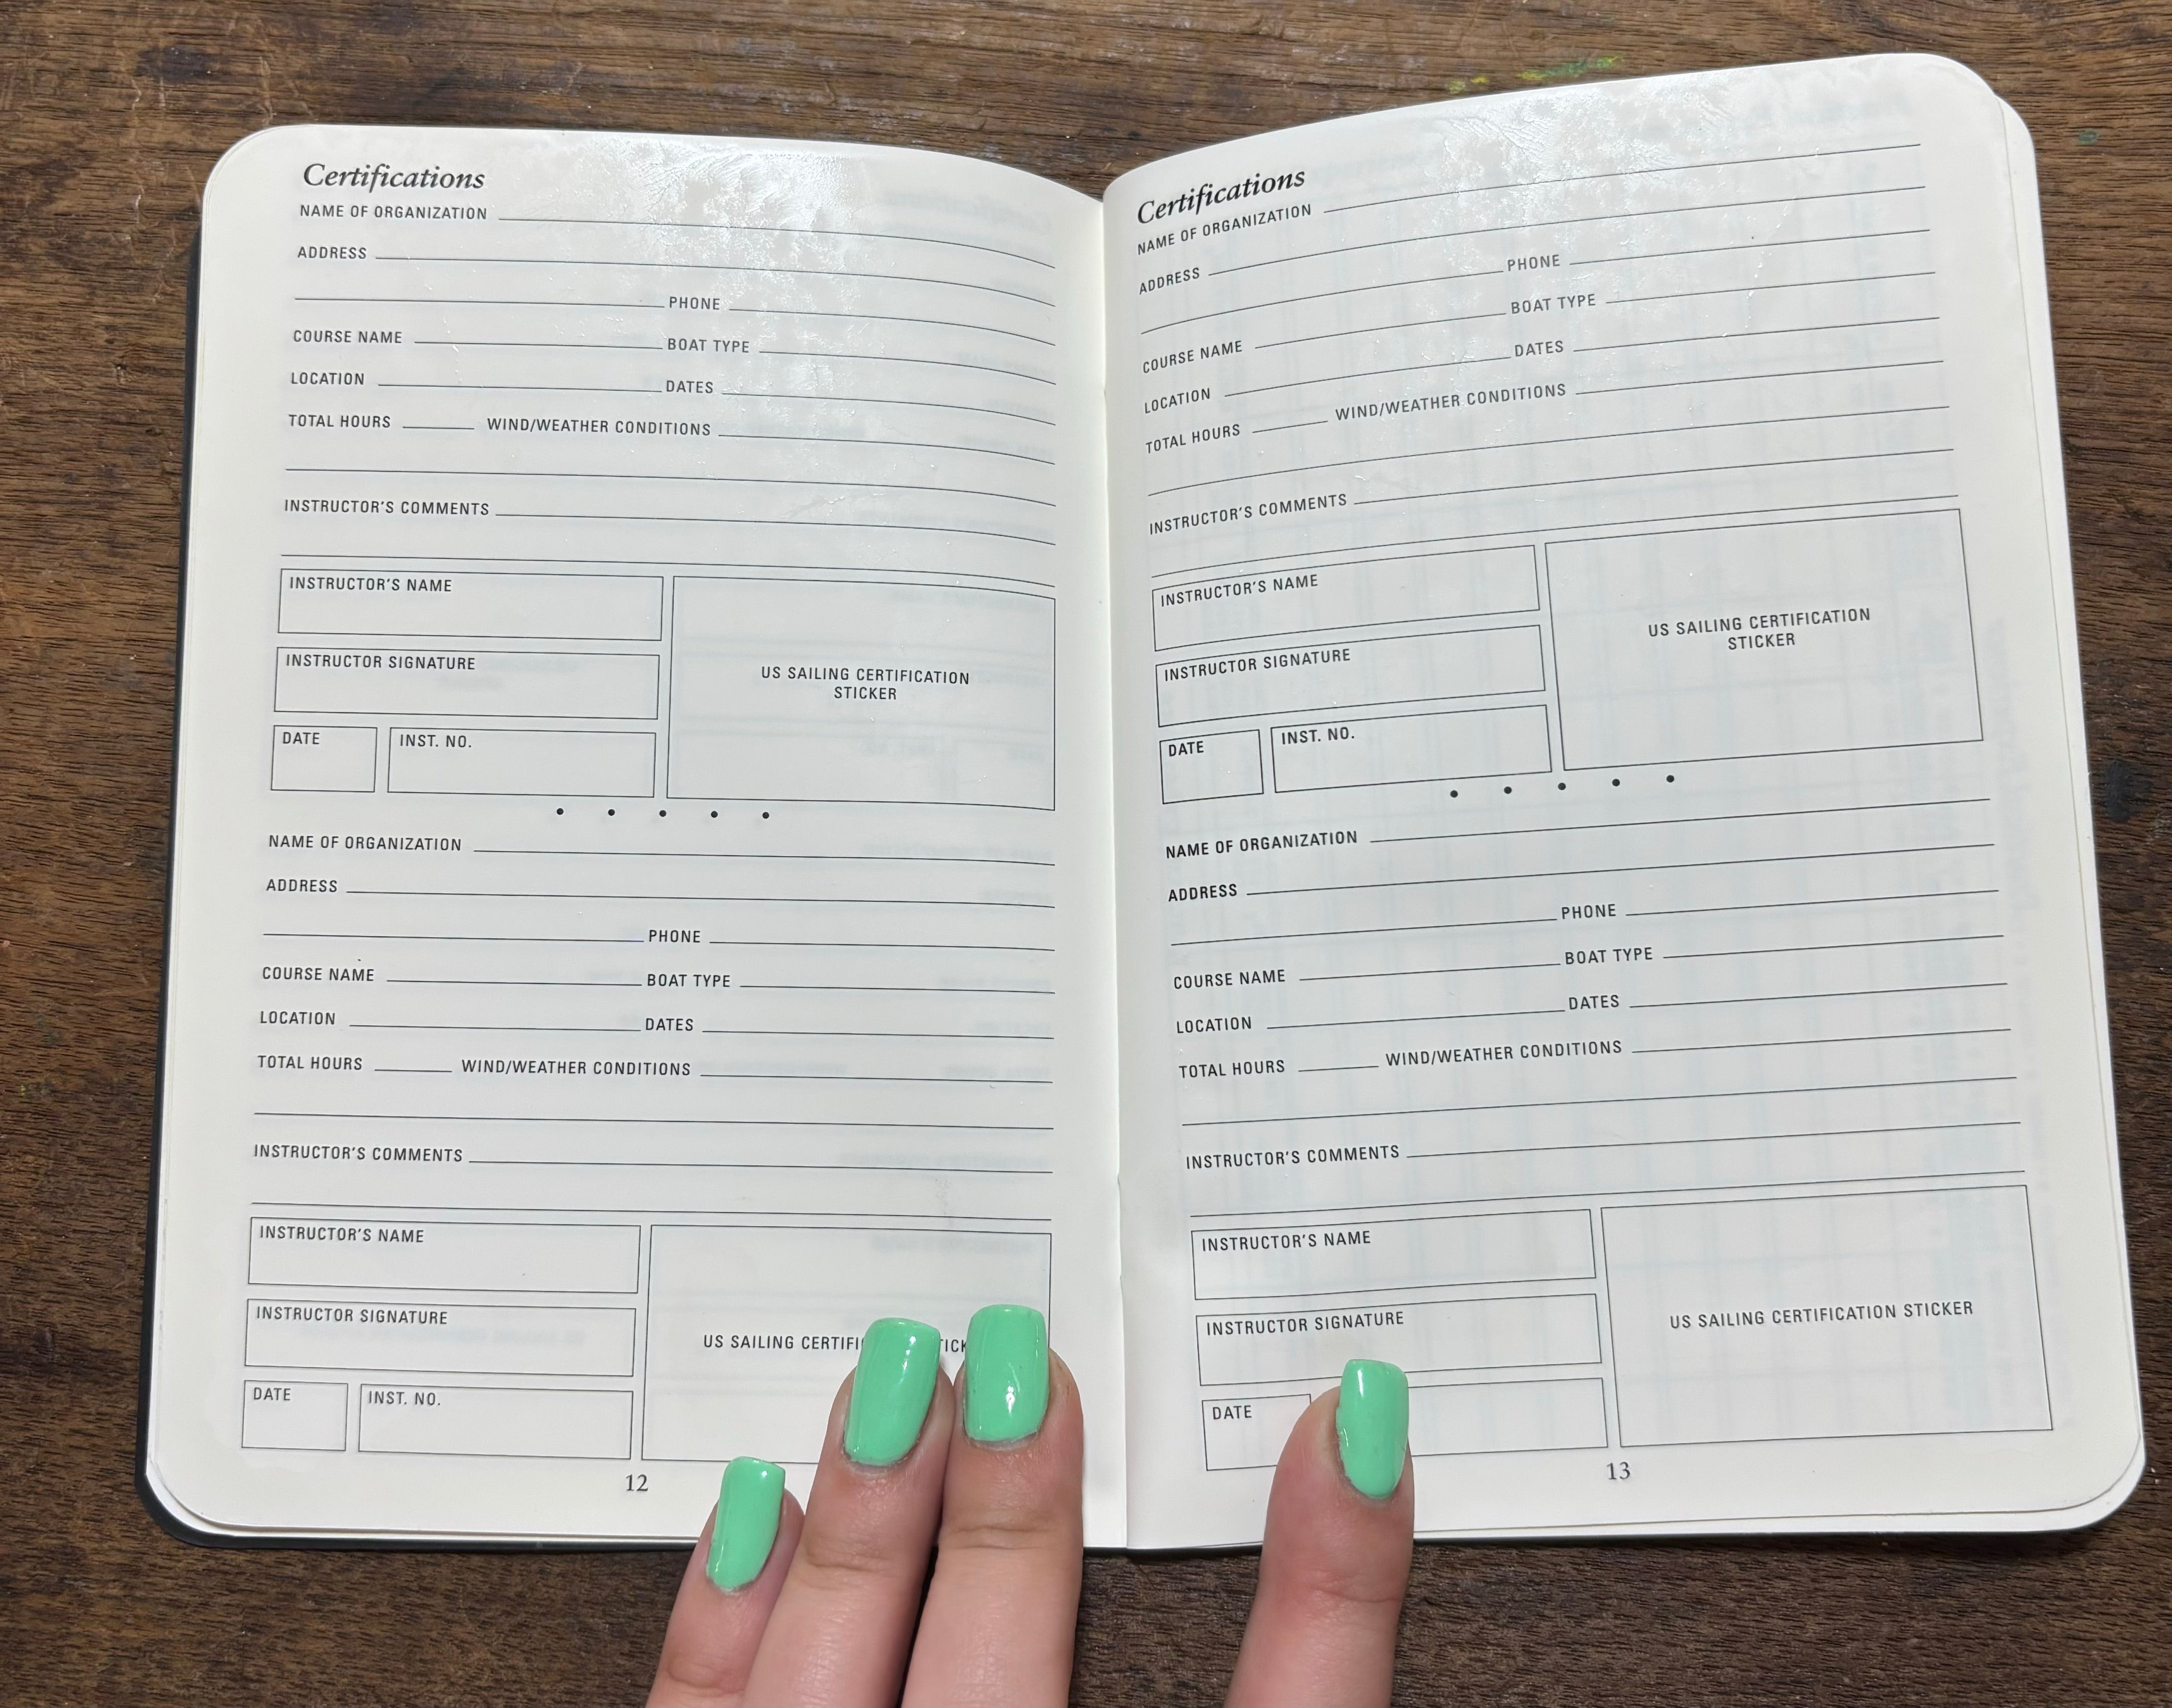 Certifications
NAME OF ORGANIZATION
ADDRESS
PHONE
COURSE NAME BOAT TYPE
LOCATION DATES
TOTAL HOURS WIND/WEATHER CONDITIONS
INSTRUCTOR'S COMMENTS
INSTRUCTOR'S NAME
INSTRUCTOR SIGNATURE
DATE INST. NO.
US SAILING CERTIFICATION
STICKER
NAME OF ORGANIZATION
ADDRESS
PHONE
COURSE NAME BOAT TYPE
LOCATION DATES
TOTAL HOURS WIND/WEATHER CONDITIONS
INSTRUCTOR'S COMMENTS
INSTRUCTOR'S NAME
INSTRUCTOR SIGNATURE
DATE INST. NO.
US SAILING
12
Certifications
NAME OF ORGANIZATION
ADDRESS
PHONE
COURSE NAME BOAT TYPE
LOCATION DATES
TOTAL HOURS WIND/WEATHER CONDITIONS
INSTRUCTOR'S COMMENTS
INSTRUCTOR'S NAME
INSTRUCTOR SIGNATURE
DATE INST. NO.
US SAILING CERTIFICATION
STICKER
NAME OF ORGANIZATION
ADDRESS
PHONE
COURSE NAME BOAT TYPE
LOCATION DATES
TOTAL HOURS WIND/WEATHER CONDITIONS
INSTRUCTOR'S COMMENTS
INSTRUCTOR'S NAME
INSTRUCTOR SIGNATURE
DATE
US SAILING CERTIFICATION STICKER
13